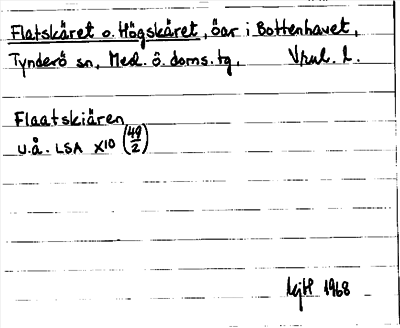 Flatskäret o. Högskäret, öar i Bottenhavet,
Tynderö sn, Med. ö. doms. tg, Vnrl. L.
Flaatskiären
u.å. LSA X10 (49/2)
1968